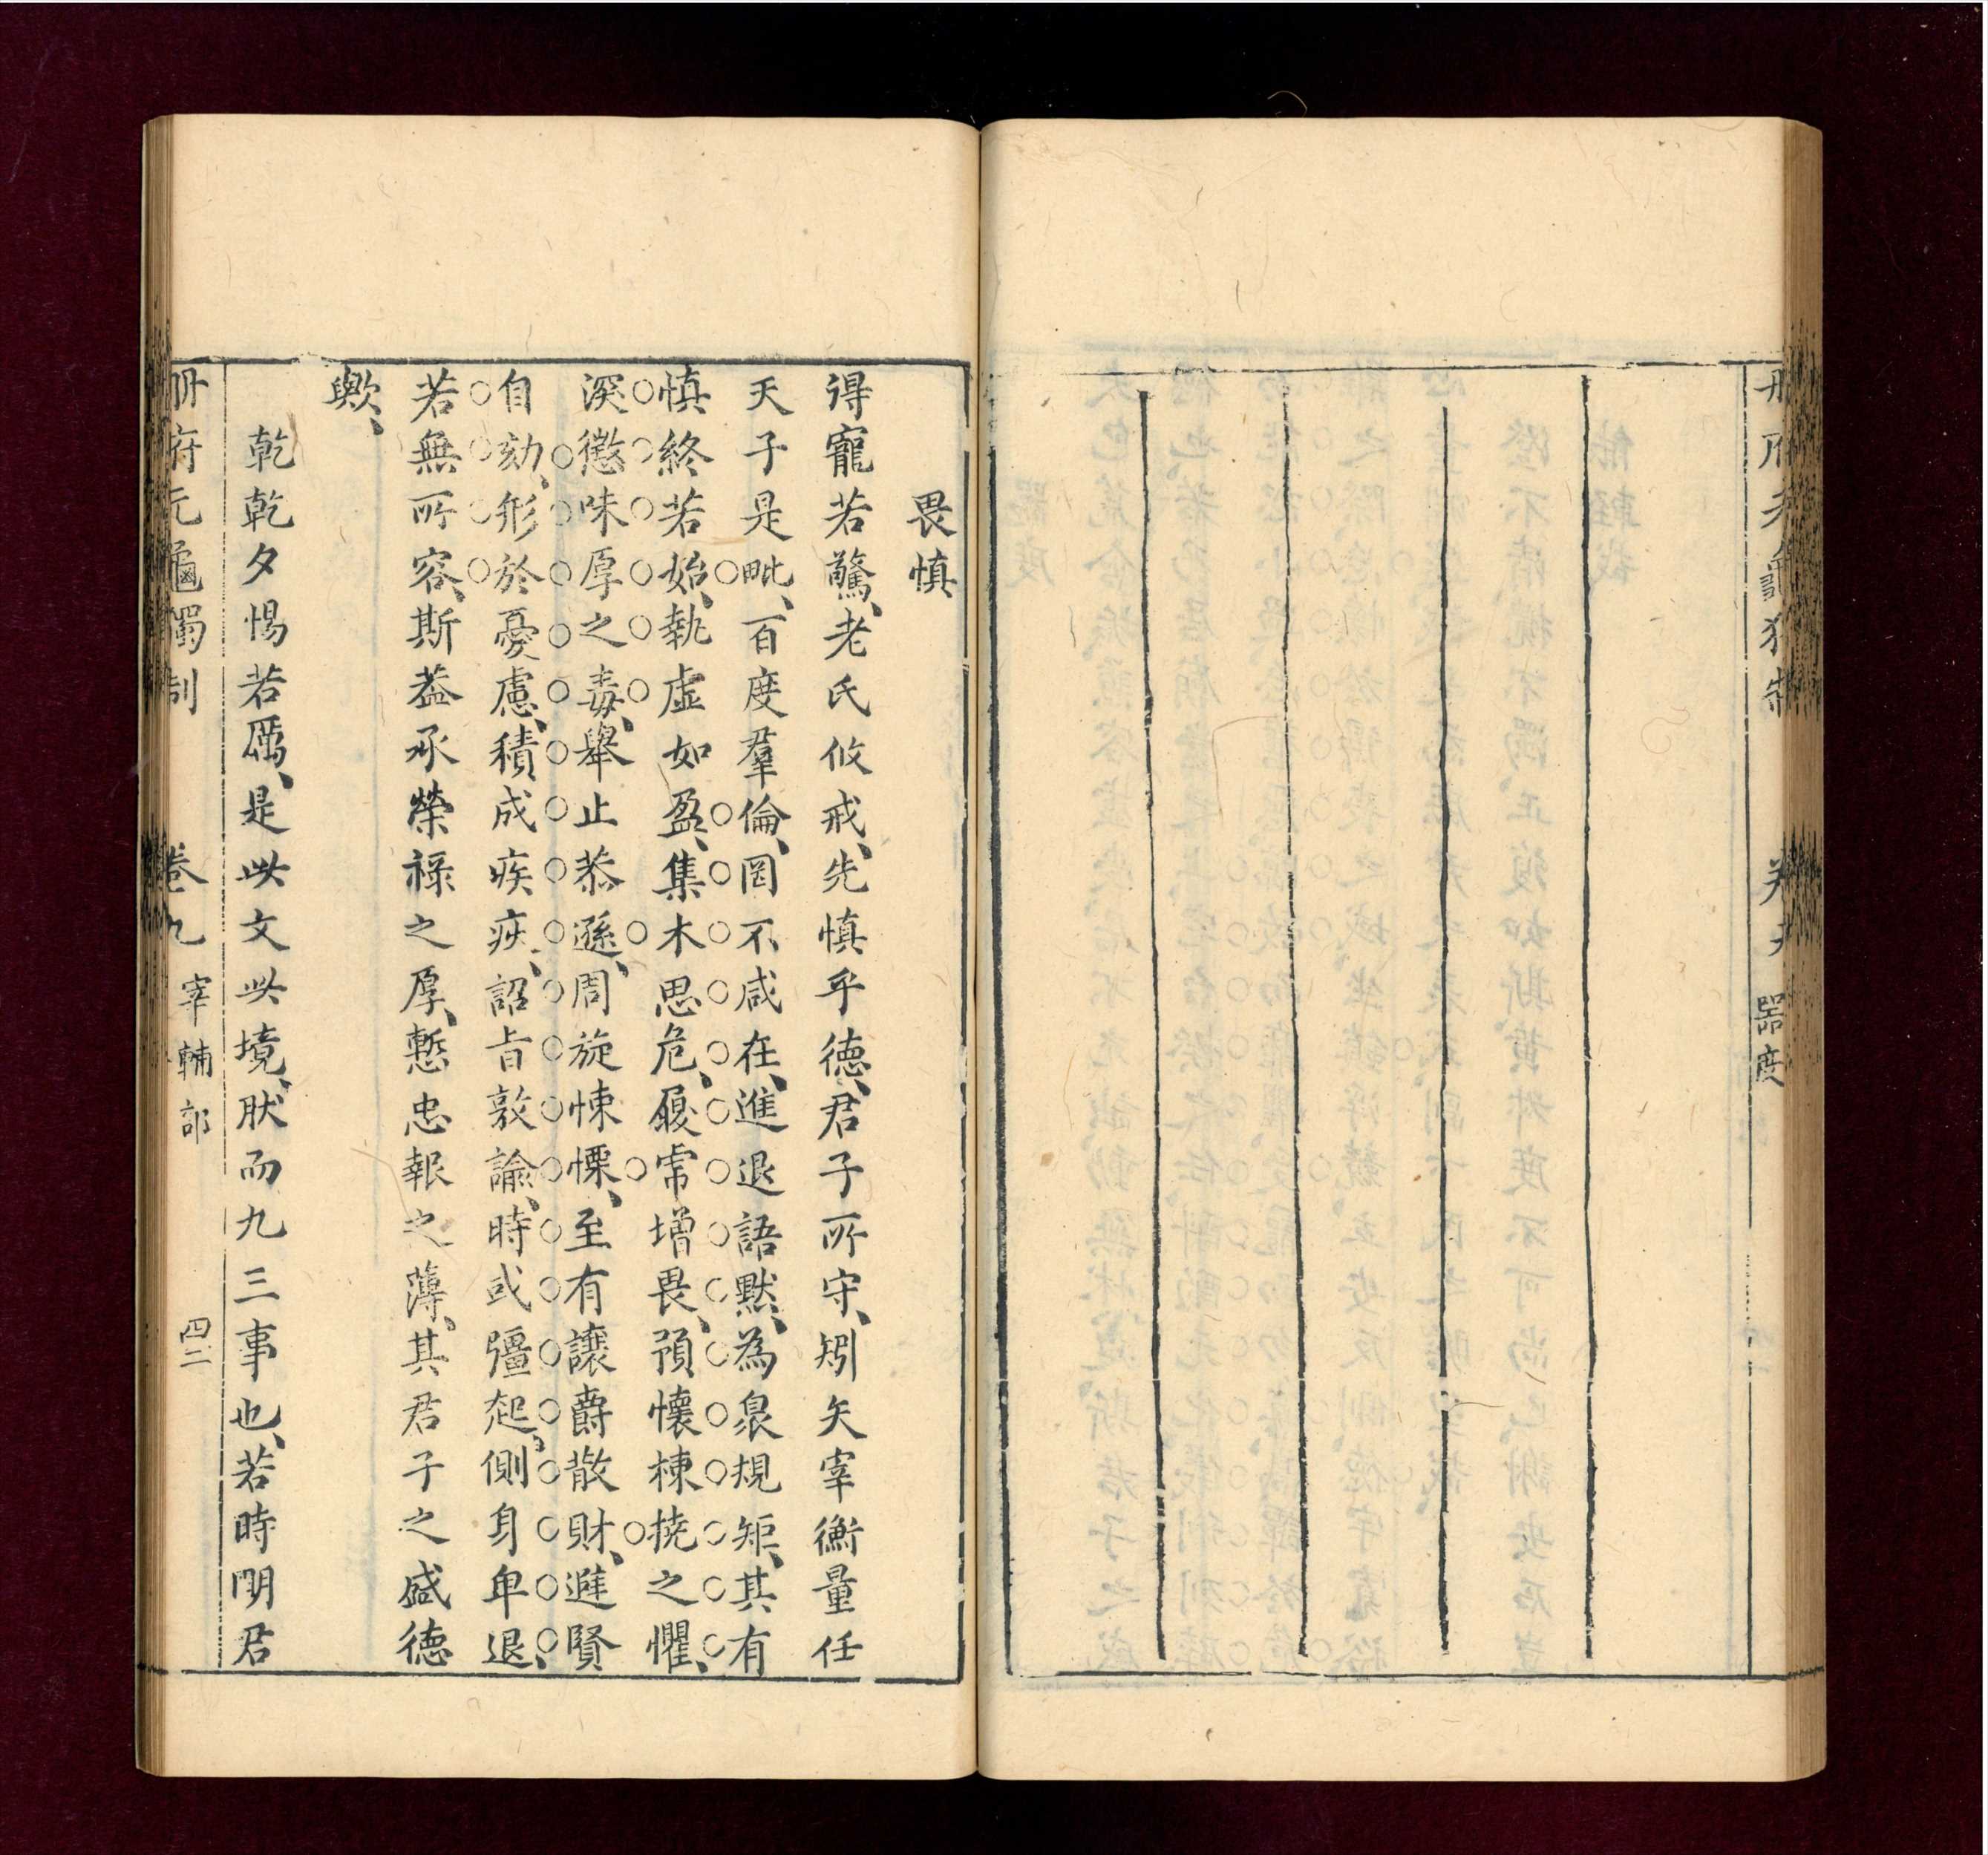 冊府元龜獨制
卷九
器度
畏慎
得寵若驚、老氏攸戒、先慎乎德、君子所守、矧矢宰衡量任
天子是毗、百度羣倫、罔不咸在、進退語默、為泉規矩、其有
慎終若始、執虛如盈、集木思危、履常增畏、預懷棟撓之懼、
深懲味厚之毒、舉止恭遜、周旋悚慄、至有讓爵散財、進賢
自劾、形於憂慮、積成疾疢、詔旨敦諭、時或彊起、側身卑退、
若無所容、斯葢承榮祿之厚、慙忠報之薄、其君子之盛德
歟、
乾乾夕惕若厲、是此文此境、肰而九三事也、若時明君
冊府元龜獨制
卷九
宰輔部
四二